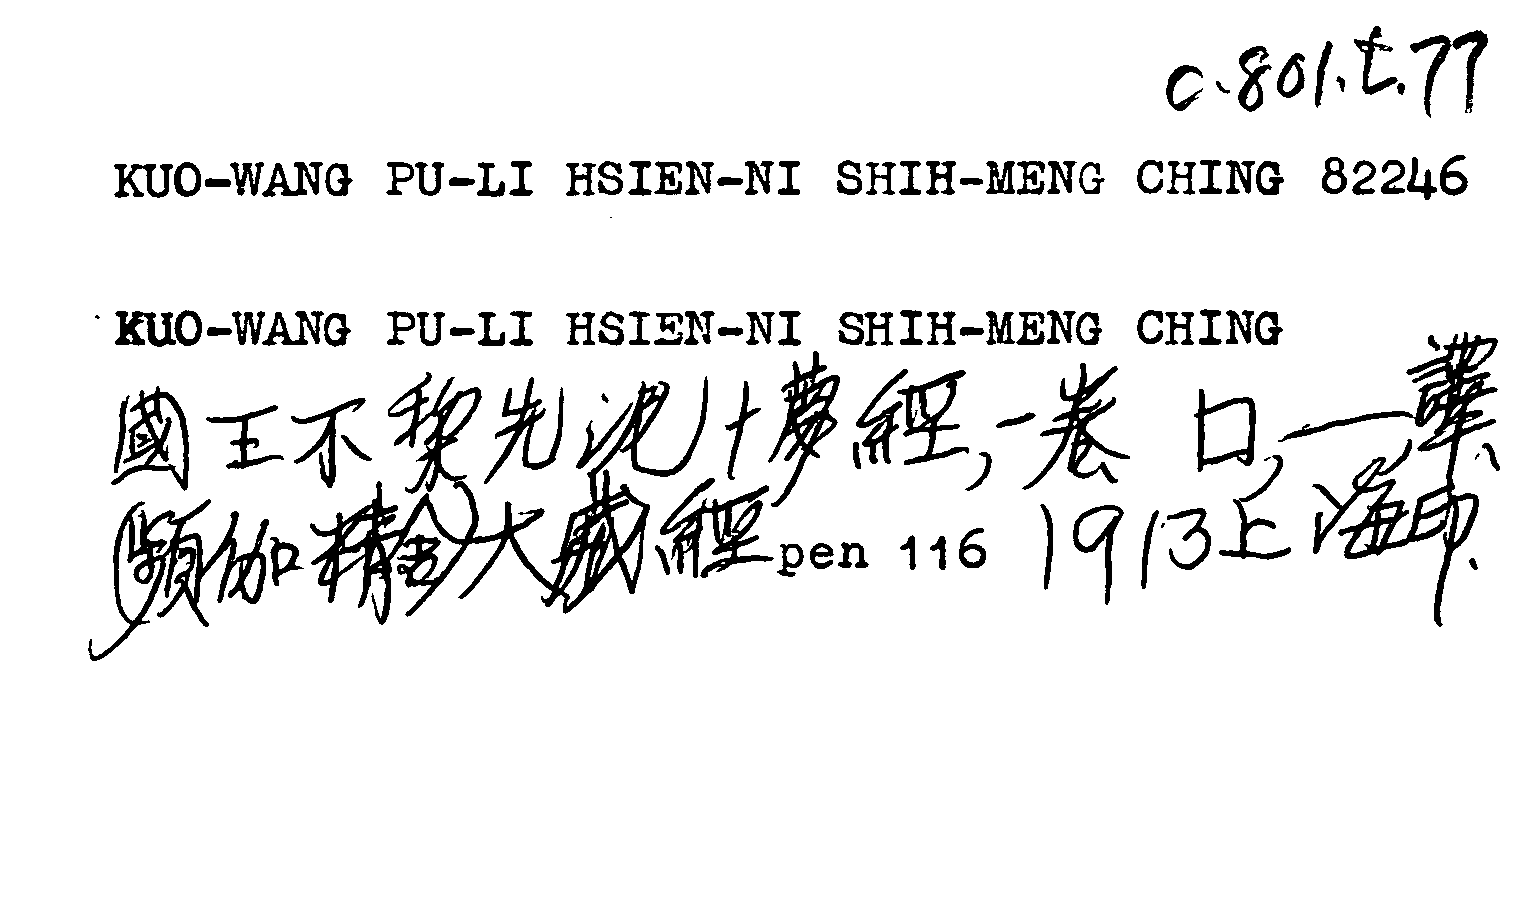 c.801.t.77
KUO-WANG PU-LI HSIEN-NI SHIH-MENG CHING 82246
KUO-WANG PU-LI HSIEN-NI SHIH-MENG CHING
國王不黎先泥十夢經,一卷 口,一譯、
(頻伽精舍)大藏經 pen 116 1913上海印.